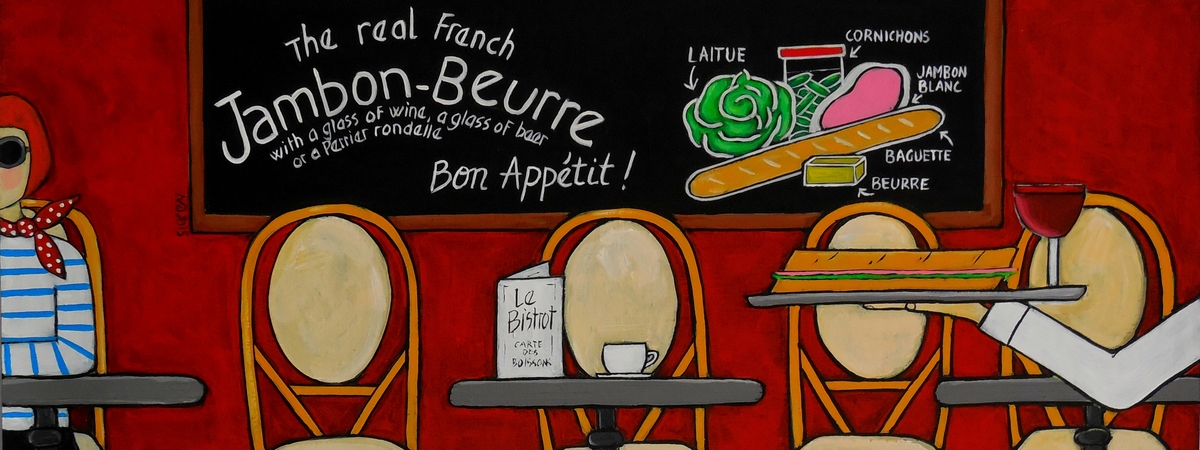 The real French
Jambon-Beurre
with a glass of wine, a glass of beer
or a Perrier rondelle
Bon Appétit !
LAITUE
CORNICHONS
JAMBON
BLANC
BAGUETTE
BEURRE
Le
Bistrot
CARTE
DES
BOISSONS